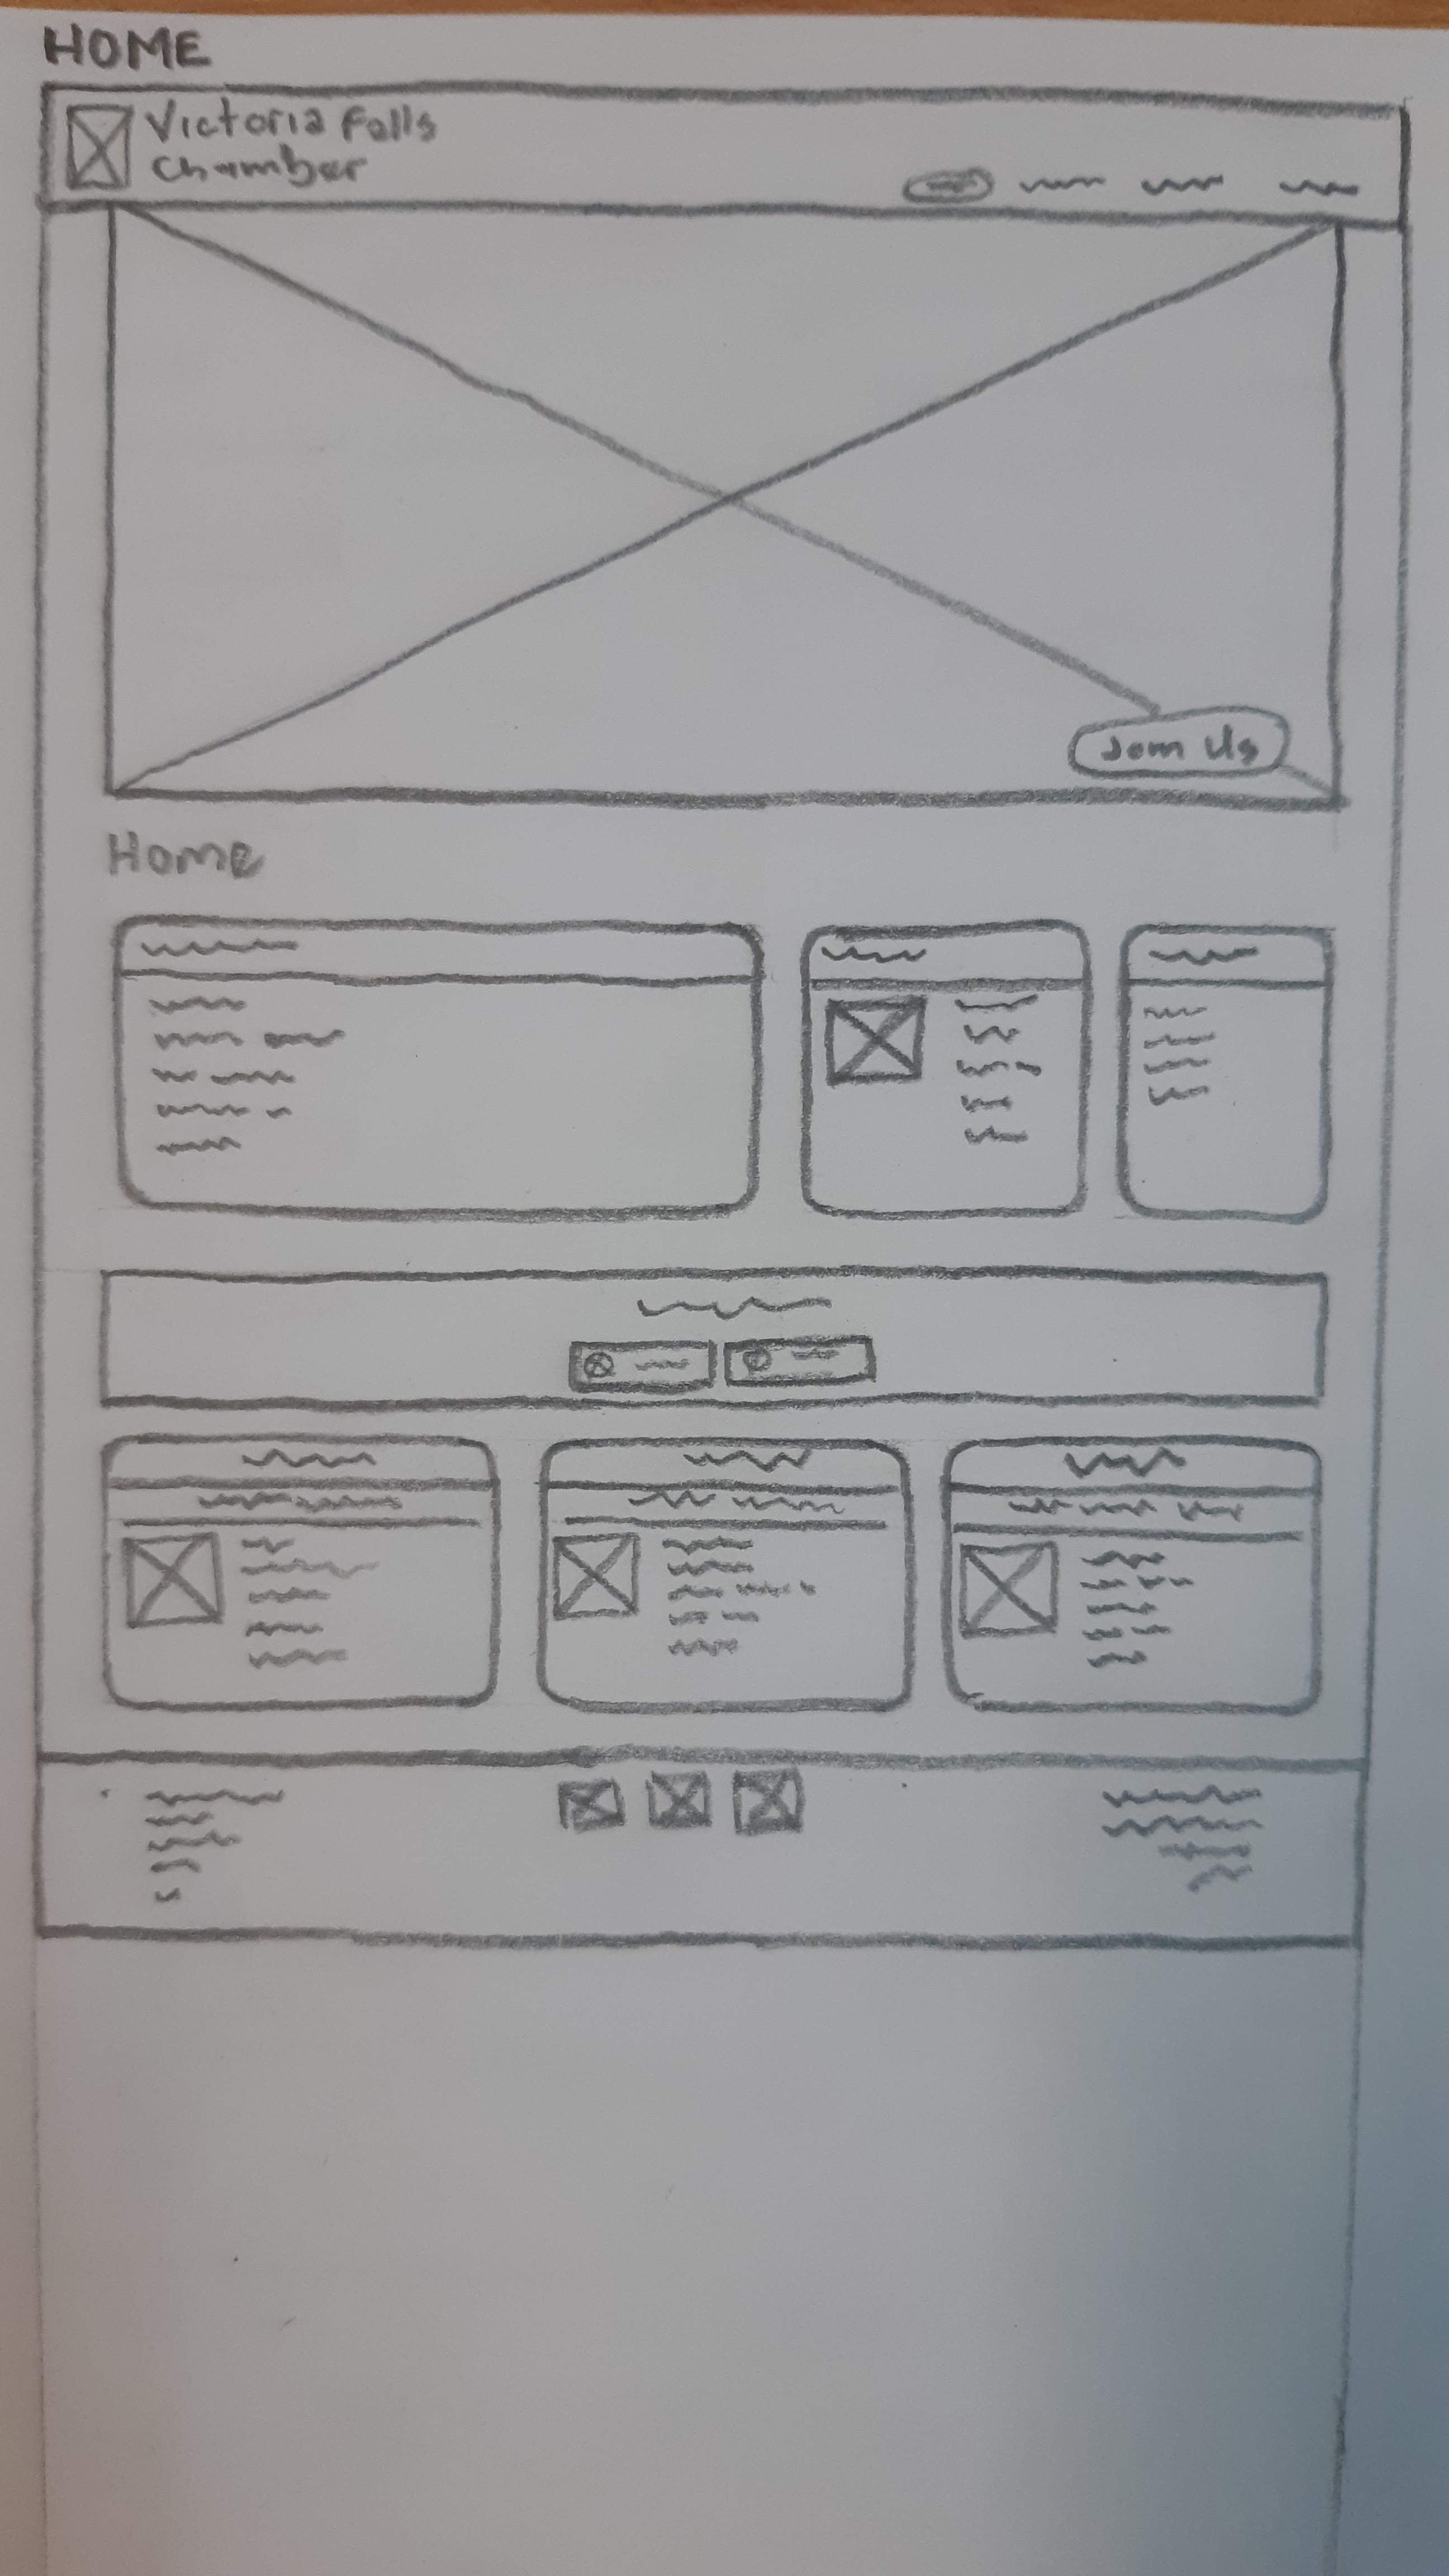 HOME
Victoria Falls
Chamber
Join Us
Home